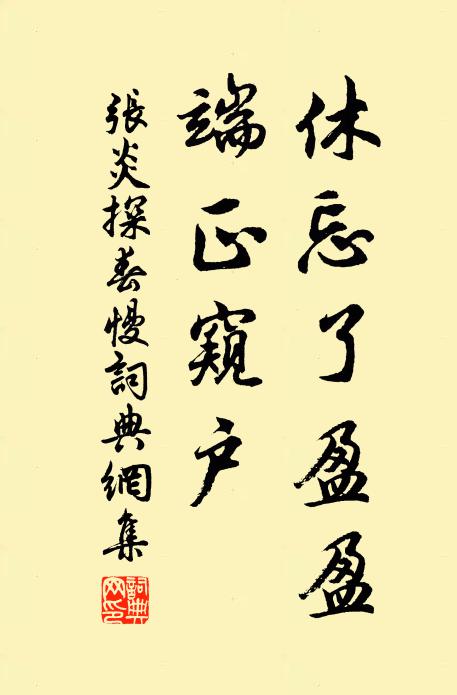 休忘了盈盈
端正窺户
張炎探春慢詞典網集
詞典网印